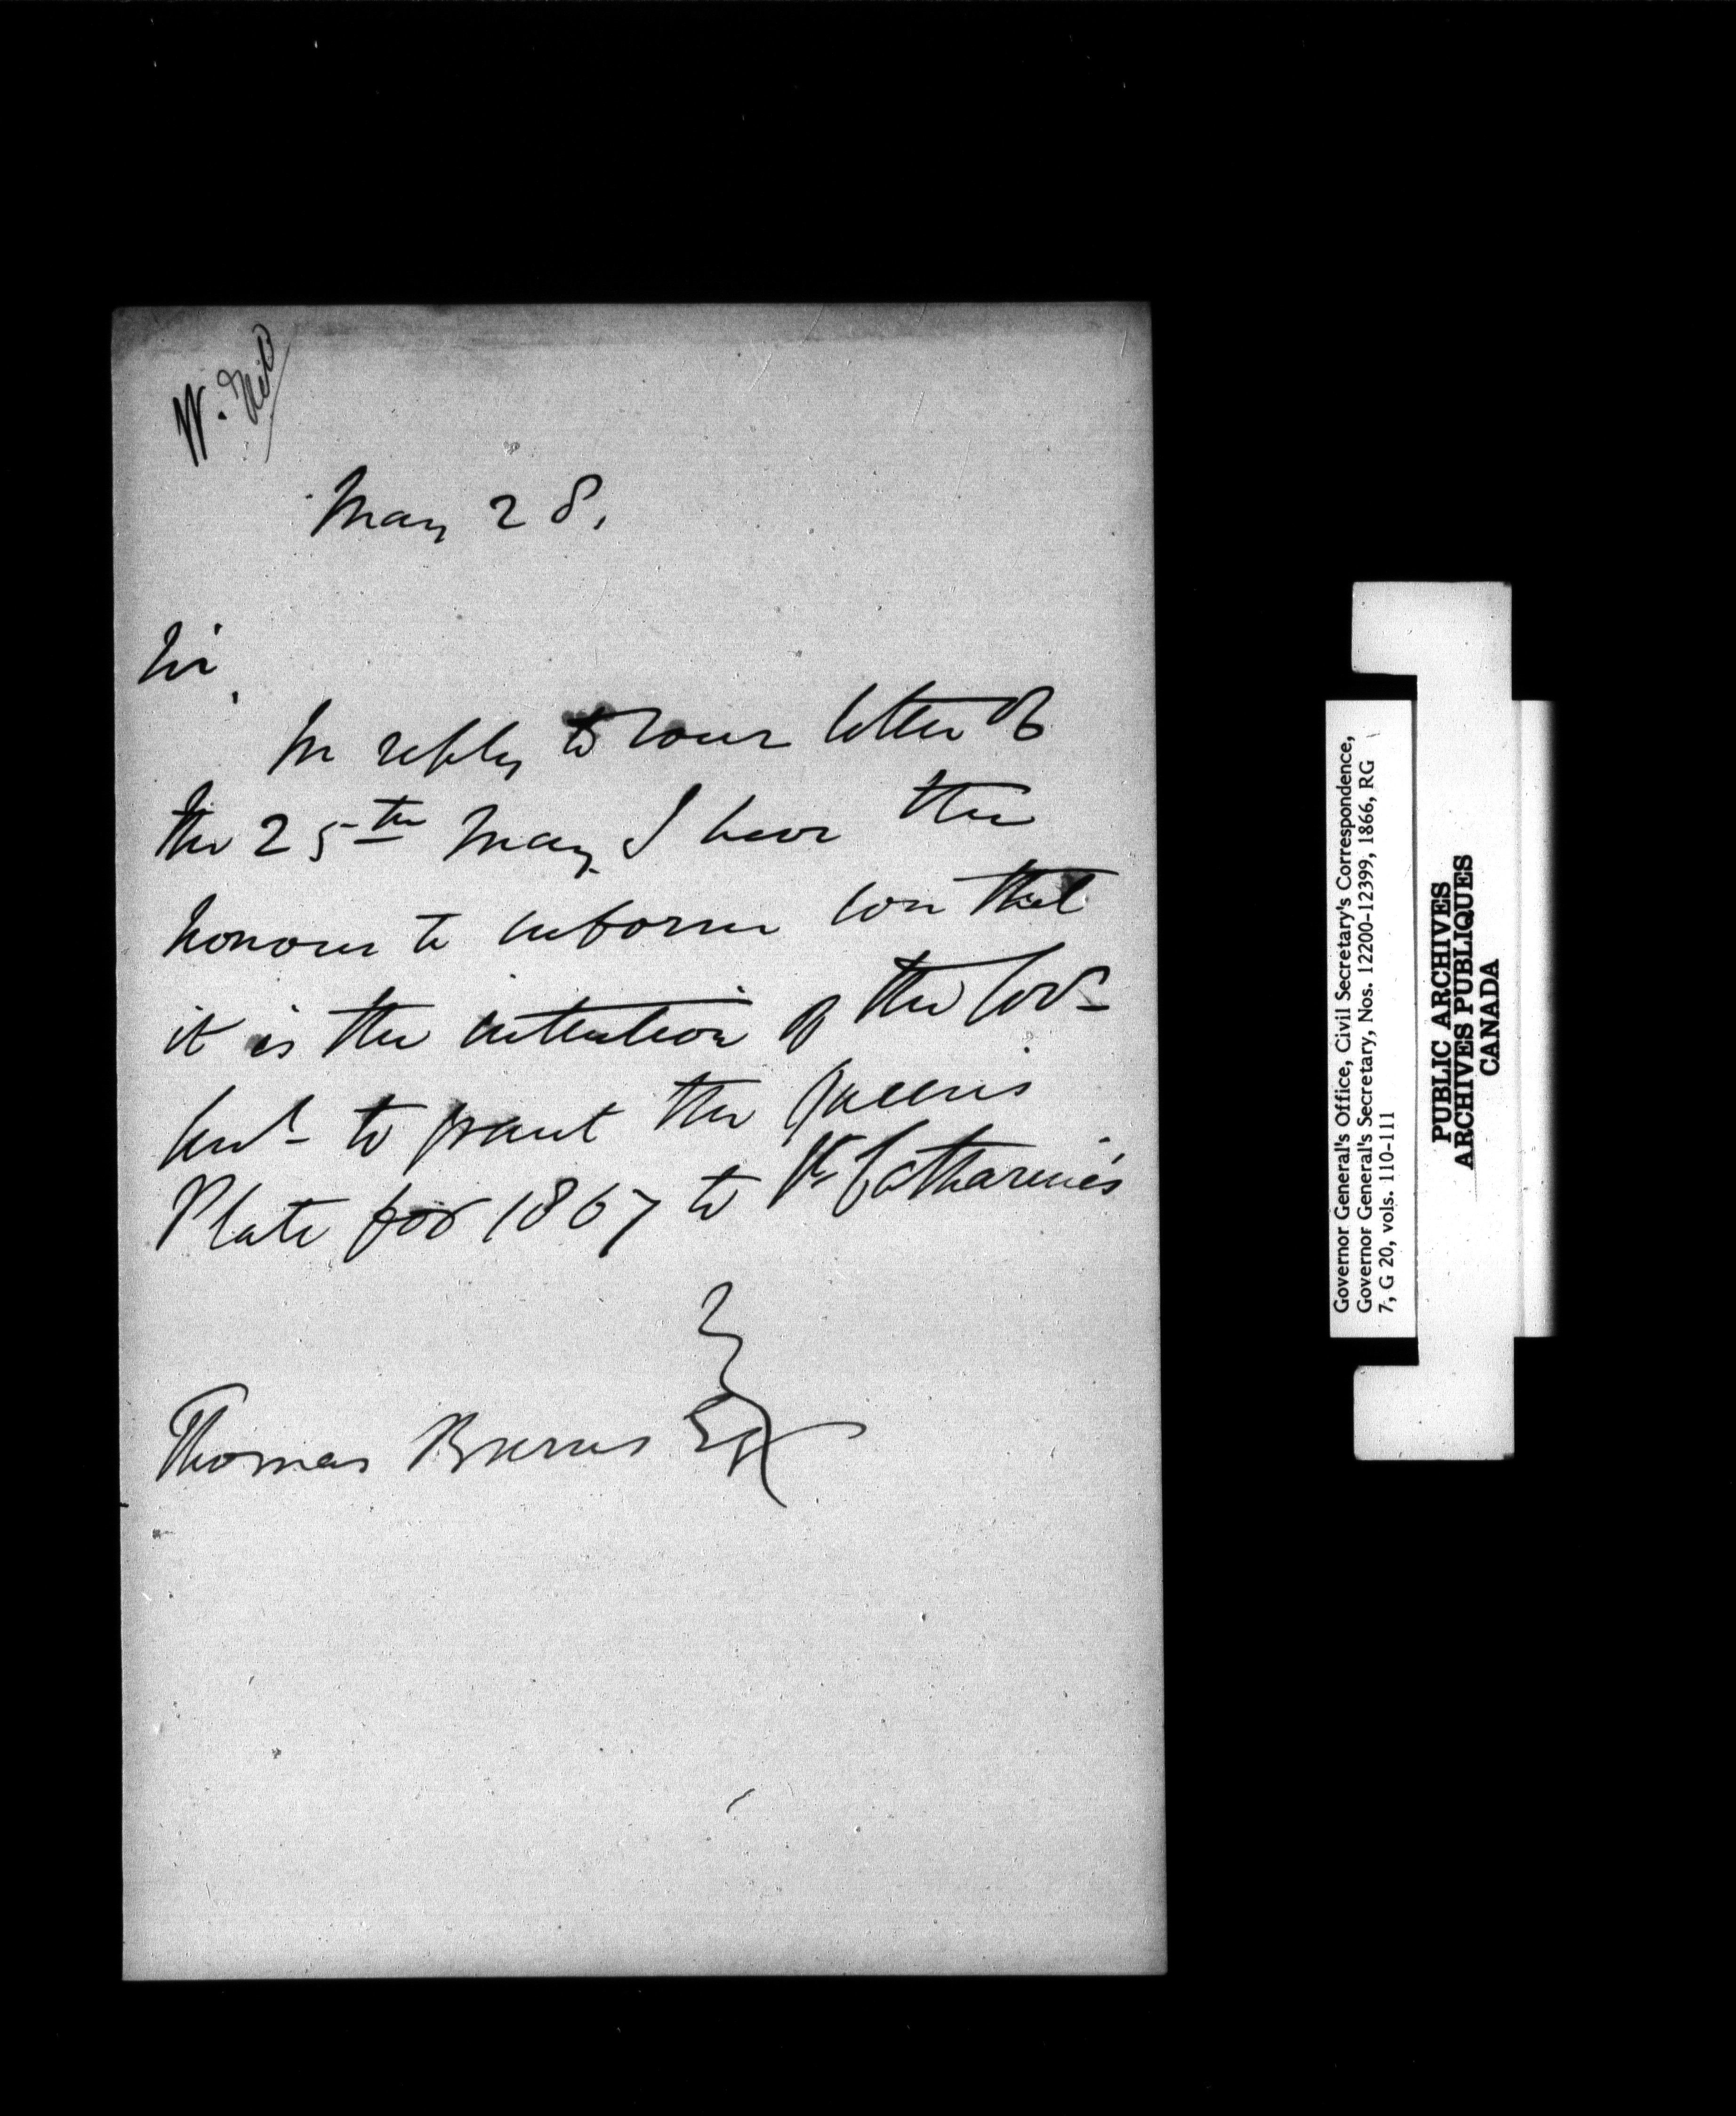 W.
May 28.
Sir,
In reply to your letter of
the 25th May I have the
honour to inform you that
it is the intention of the Govr
Genl to grant the Queen's
Plate for 1867 to St Catharine's
Thomas Burns Esq
Governor General's Office, Civil Secretary's Correspondence,
Governor General's Secretary, Nos. 12200-12399, 1866, RG
7, G 20, vols. 110-111
PUBLIC ARCHIVES
ARCHIVES PUBLIQUES
CANADA